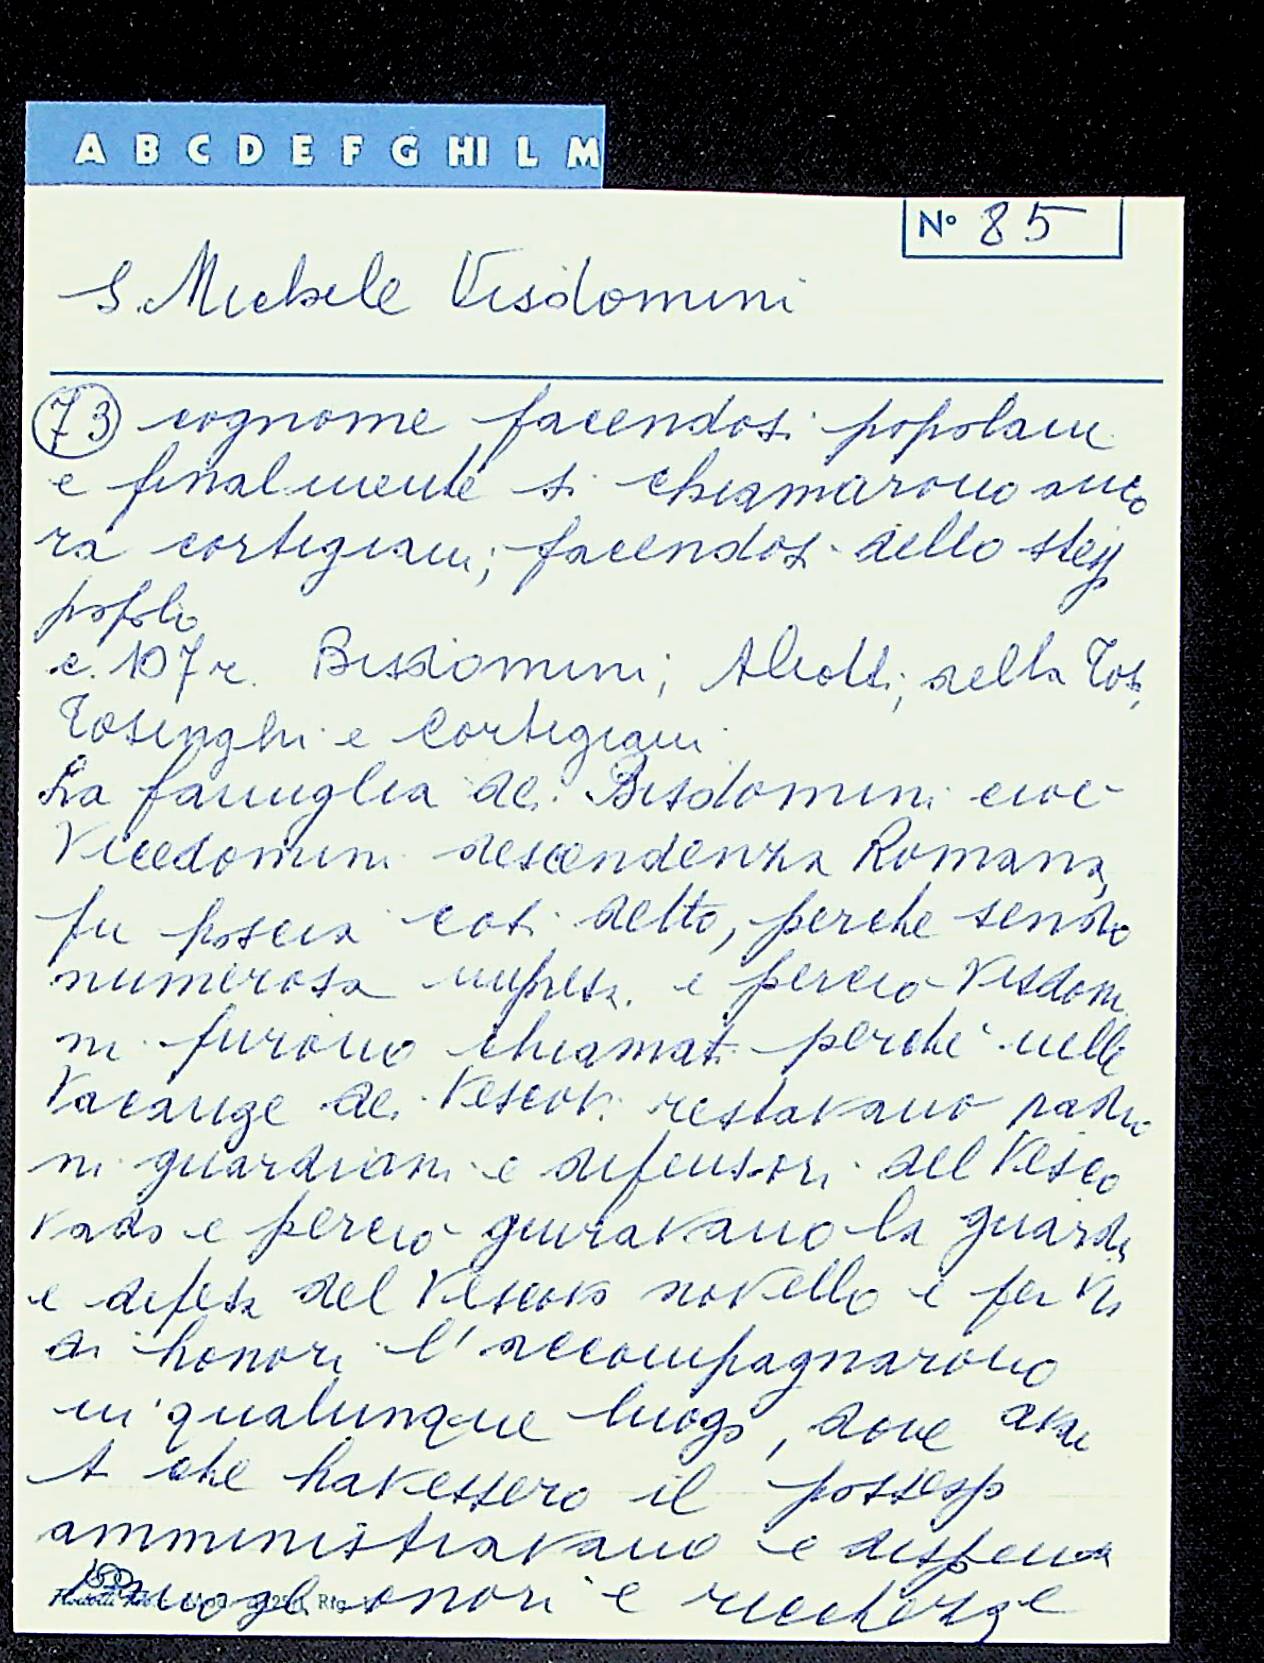 A B C D E F G HI L M
N° 85
S. Michele Visdomini
73 cognome facendosi popolani
e finalmente si chiamarono anco
ra cortigiani; facendosi dello stesso
popolo
c. 107 r. Bisdomini; Aliotti; della Tosa,
Tosinghi e Cortigiani
La famiglia dei Bisdomini cioè
Vicedomini descendenza Romana,
fu poscia così detto, perche sendo
numerosa e perciò Visdomi
ni furono chiamati perchè nelle
Vacanze dei Vescovi restavano padro
ni guardiani e difensori del Vesco
vado e perciò giuravano la guardia
e difesa del Vescovo novello e per
di honori l'accompagnarono
in qualunque luogo, dove avan
ti che havessero il possesso
amministravano e dispensa
vano gli onori e ricchezze